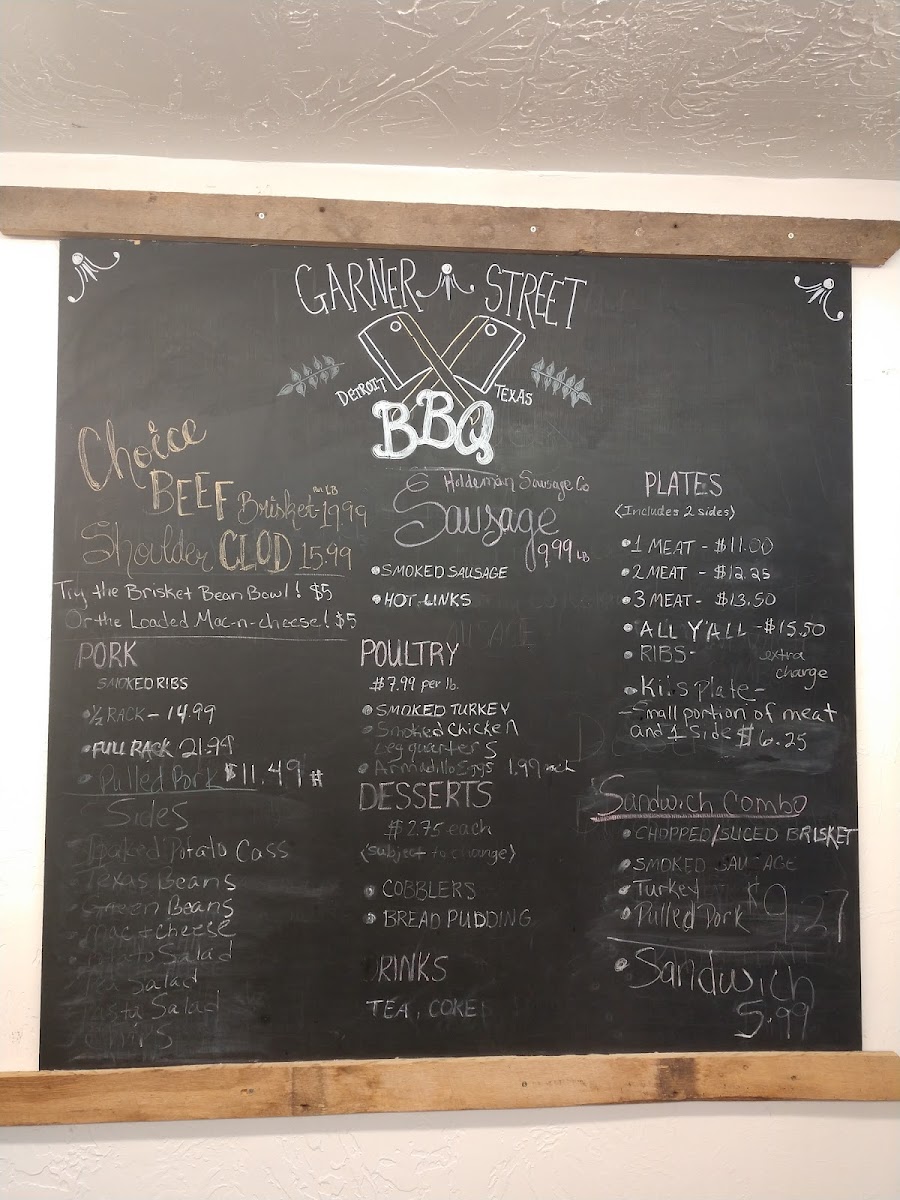 GARNER STREET
DETROIT TEXAS
BBQ
Choice
BEEF Brisket-1999
Shoulder CLOD 15.99
Try the Brisket Bean Bowl! $5
Or the Loaded Mac-n-cheese! $5
PORK
SMOKED RIBS
•½ RACK - 14.99
•FULL RACK 21.99
• Pulled Pork $11.49 #
Sides
Potato Cass
• Texas Beans
• Green Beans
• Mac + cheese
• Potato Salad
Salad
Pasta Salad
Chips
Holdeman Sausage Co
Sausage
999 LB
•SMOKED SAUSAGE
•HOT LINKS
POULTRY
$7.99 per lb.
•SMOKED TURKEY
•Smoked Chicken
Leg quarters
•Armadillo Eggs 1.99 each
DESSERTS
$2.75 each
(subject to change)
• COBBLERS
• BREAD PUDDING
RINKS
TEA, COKE
PLATES
(Includes 2 sides)
•1 MEAT - $11.00
•2 MEAT - $12.25
•3 MEAT - $13.50
•ALL Y'ALL - $15.50
•RIBS - extra
charge
•Kids Plate -
-Small portion of meat
and 1 side $6.25
Sandwich Combo
•CHOPPED/SLICED BRISKET
•SMOKED SAUSAGE
•Turkey
•Pulled Pork $9.27
• Sandwich
5.99